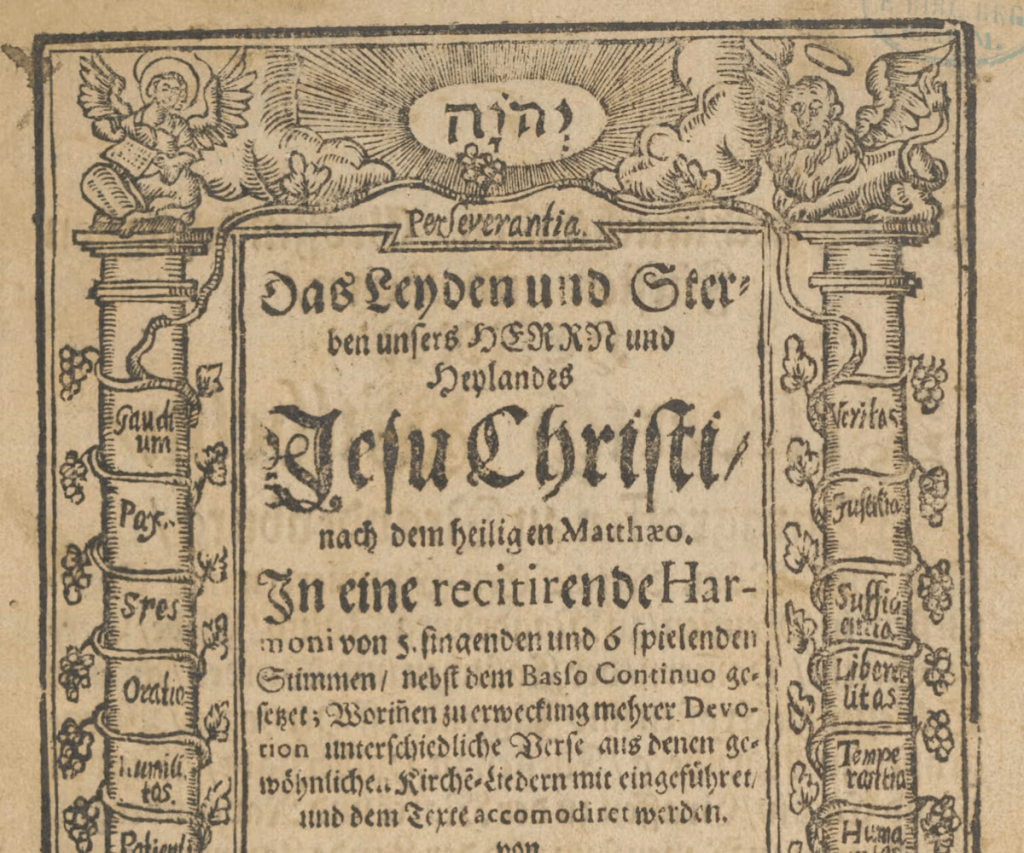 יְהֹוָה
Perseverantia.
Das Leyden und Ster-
ben unsers HERRN und
Heylandes
Jesu Christi/
nach dem heiligen Matthæo.
In eine recitirende Har-
moni von 5. singenden und 6 spielenden
Stimmen/ nebst dem Basso Continuo ge-
setzet; Woriñen zu erweckung mehrer Devo-
tion unterschiedliche Verse aus denen ge-
wöhnlichen Kirchẽ-Liedern mit eingeführet/
und dem Texte accomodiret werden.
von
Gaudi
um
Pax.
Spes
Oratio
humili
tas.
Patienti
Veritas
Justitia
Suffici
entia.
Libera
litas
Tempe
rantia
Huma